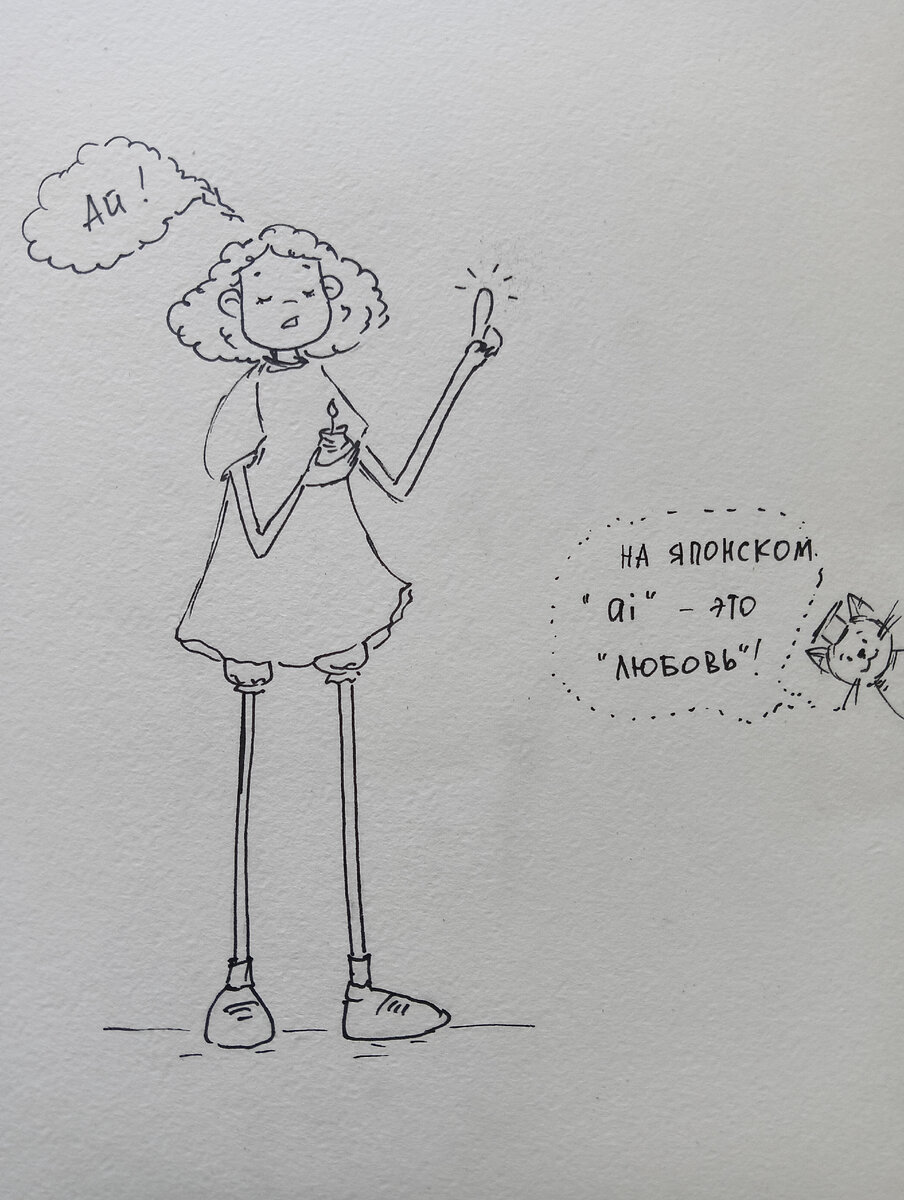 Ай!
НА ЯПОНСКОМ
"ai" - ЭТО
"ЛЮБОВЬ"!